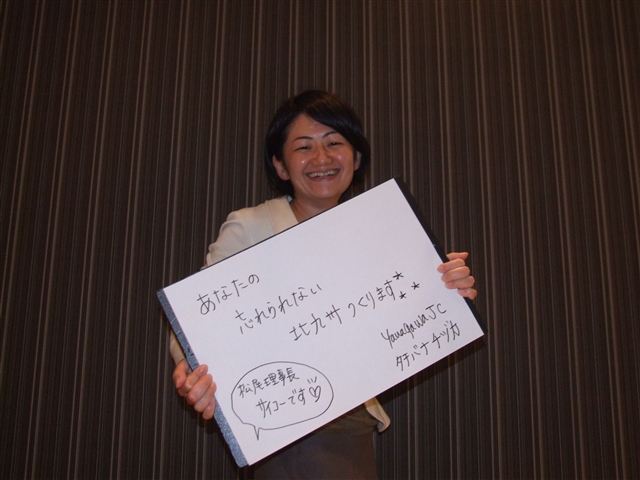 あなたの
忘れられない
北九州つくります
Yanagawa JC
タチバナ チヅカ
松尾理事長
サイコーです♡